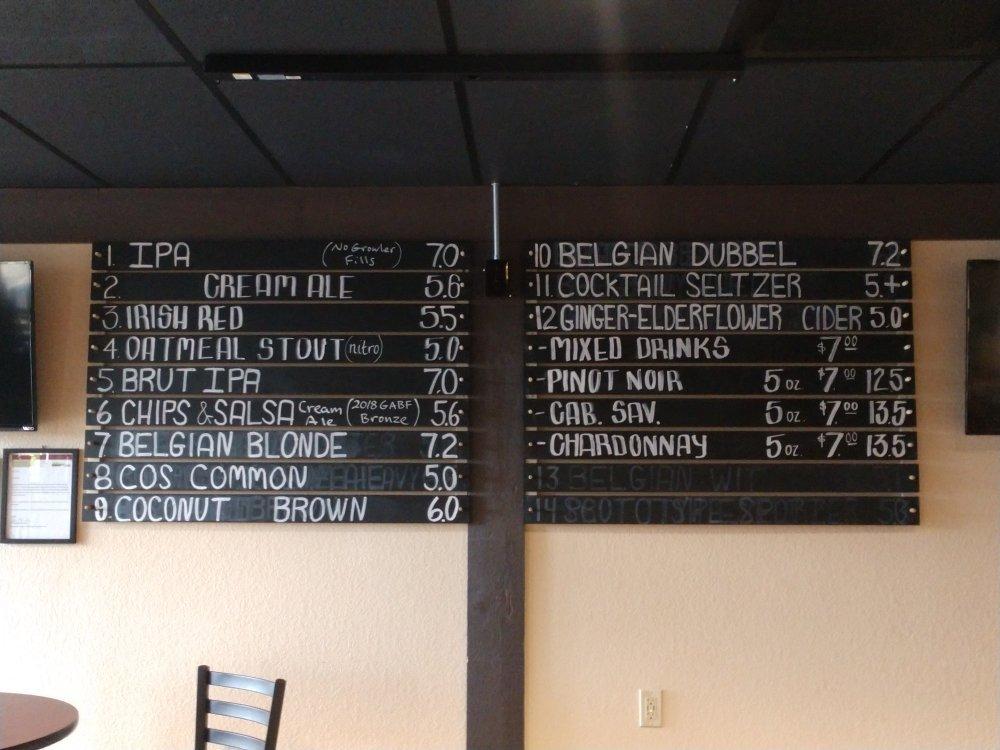 1. IPA (No Growler Fills) 7.0
2. CREAM ALE 5.6
3. IRISH RED 5.5
4. OATMEAL STOUT (nitro) 5.0
5. BRUT IPA 7.0
6 CHIPS & SALSA Cream Ale (2018 GABF Bronze) 5.6
7 BELGIAN BLONDE 7.2
8 COS COMMON 5.0
9. COCONUT BROWN 6.0
10 BELGIAN DUBBEL 7.2
11. COCKTAIL SELTZER 5.+
12 GINGER-ELDERFLOWER CIDER 5.0
-MIXED DRINKS $7.00
-PINOT NOIR 5 oz. $7.00 12.5
-CAB. SAV. 5 oz. $7.00 13.5
-CHARDONNAY 5 oz. $7.00 13.5
13 BELGIAN WIT
14